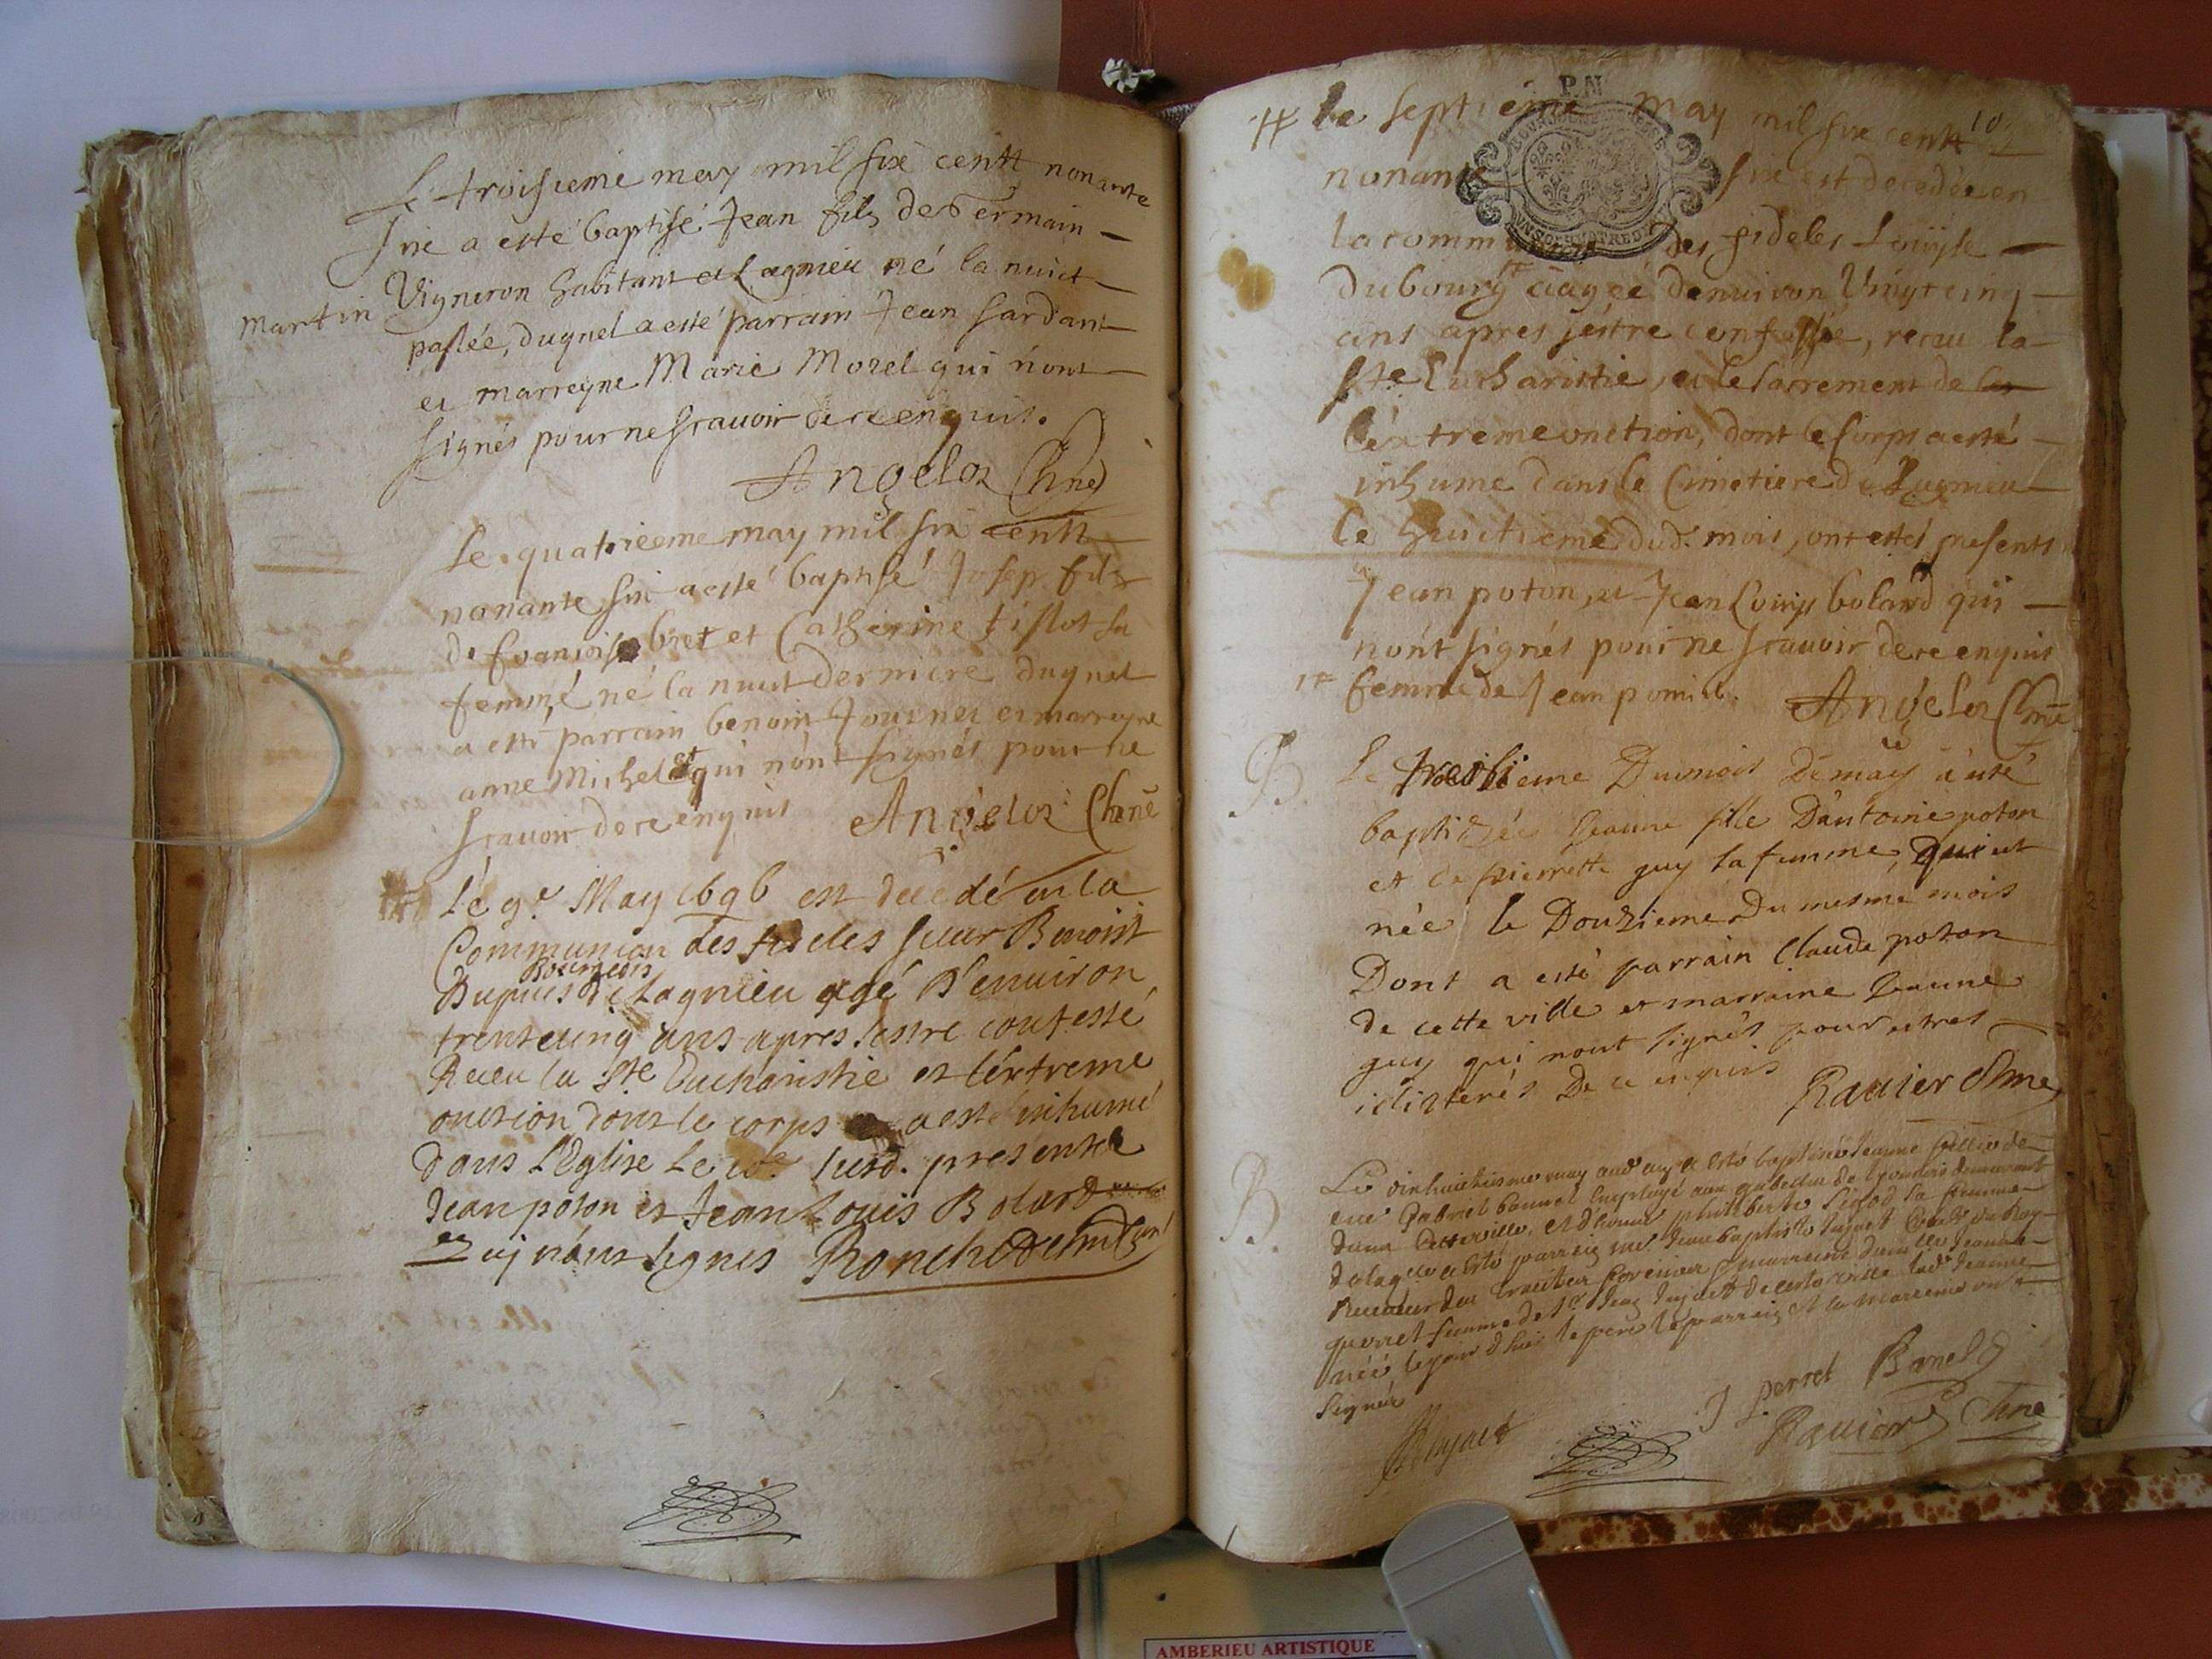 Le troisieme may mil six centt nonante
six a esté baptisé Jean fils de Germain
Martin Vigneron habitant a Lagnieu né la nuict
passée, duquel a esté parrain Jean Sardant
et marreyne Marie Morel qui n'ont
signés pour ne scauoir de ce enquis.
Angelos Chne
Le quatrieeme may mil six centt
nonante six a esté baptisé Josep fils
de francoise bret et Catherine tissot sa
femme né la nuit derniere duquel
a esté parrain benoit Journet et marreyne
anne Michelet qui n'ont signés pour ne
scauoir de ce enquis Angelos Chne
Le 9.e May 1696 est decedé en la
Communion des fideles sieur Benoist
Bourgeois
Dupuis de Lagnieu agé d'enuiron
trente cinq ans apres s'estre confessé
Receu la Ste Eucharistie et l'extreme
onction dont le corps a esté inhumé
dans l'Eglise Le 10e susd. presents
Jean poton et Jean Louis Bolard
qui n'ont signés
P.N
10
Le septieme may mil six centt
nonante six est decedée en
la communion des fideles Louyse
dubourg aagée denuiron Vingt cinq
ans apres s'estre confessée, receu la
ste Eucharistie, et le sacrement de
l'extreme onction, dont le Corps a esté
inhume dans le Cimetiere de Lagnieu
le huictieme dud. mois, ont estés presents
Jean poton, et Jean Louys bolard qui
n'ont signés pour ne scauoir de ce enquis
femme de Jean Angelos Chne
B. Le treisieme Du mois De may a esté
baptizée Jeanne fille D'antoine poton
et de pierrette guy sa femme, qui est
née le Douzieme Du mesme mois
Dont a esté parrain Claude poton
de cette ville et marraine Jeanne
guy qui n'ont signés pour estres
iliterés De ce enquis Rauier Chne
B. Le dixhuictiesme may aud an a esté baptisée Jeanne fille de
sieur Gabriel bonnet Employé aux gabelles de demeurant
dans cette ville, et d'honne philliberte sa femme
de laquelle a esté parrain mr Jean baptiste du Roy
Receueur des marreine dam.lle Jeanne
perret femme de Sr Jean de cette ville lad. Jeanne
née le jour d'hier le pere le parrain et la marreine ont
Signés
J perret Bonet
Rauier Chne
AMBERIEU ARTISTIQUE